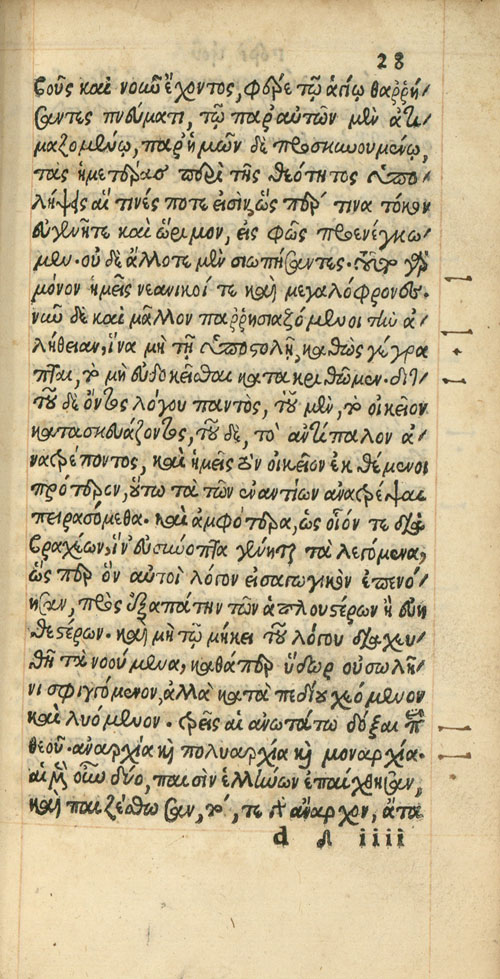 τοὺς καὶ νοῦν ἔχοντος, φέρε τῷ ἁγίῳ θαῤῥή/
σαντες πνεύματι, τῷ παρ' αὐτῶν μὲν ἀτι/
μαζομένῳ, παρ' ἡμῶν δὲ προσκυνουμένῳ,
τὰς ἡμετέρας περὶ τῆς θεότητος ὑπο/
λήψεις αἵ τινές ποτε εἰσὶν, ὥς περ τινα τόκον
εὐγενῆ τε καὶ ὥριμον, εἰς φῶς προενέγκω/
μεν. οὐ δὲ ἄλλοτε μὲν σιωπήσαντες. τοῦτο γὰρ
μόνον ἡμεῖς νεανικοί τε καὶ μεγαλόφρονες.
νῦν δὲ καὶ μᾶλλον παῤῥησιαζόμενοι τὴν ἀ/
λήθειαν, ἵνα μὴ τῇ ὑποστολῇ, καθὼς γέγρα
πται, τὸ μὴ εὐδοκεῖσθαι κατακριθῶμεν. διτ/
τοῦ δὲ ὄντος λόγου παντὸς, τοῦ μὲν, τὸ οἰκεῖον
κατασκευάζοντος, τοῦ δὲ, τὸ ἀντίπαλον ἀ/
νατρέποντος, καὶ ἡμεῖς τὸν οἰκεῖον ἐκθέμενοι
πρότερον, οὕτω τὰ τῶν ἐναντίων ἀνατρέψαι
πειρασόμεθα. καὶ ἀμφότερα, ὡς οἷόν τε διὰ
βραχέων, ἵν' εὐσύνοπτα γένηται τὰ λεγόμενα,
ὥς περ ὃν αὐτοὶ λόγον εἰσαγωγικὸν ἐπενό/
ησαν, πρὸς ἐξαπάτην τῶν ἁπλουστέρων ἢ εὐη
θεστέρων. καὶ μὴ τῷ μήκει τοῦ λόγου διαχυ/
θῇ τὰ νοούμενα, καθάπερ ὕδωρ οὐ σωλῆ/
νι σφιγγόμενον, ἀλλὰ κατὰ πεδίου χεόμενον
καὶ λυόμενον. τρεῖς αἱ ἀνωτάτω δόξαι περὶ
θεοῦ. ἀναρχία καὶ πολυαρχία καὶ μοναρχία.
αἱ μὲν οὖν δύο, παισὶν ἑλλήνων ἐπαίχθησαν,
καὶ παιζέσθωσαν, τό, τε γὰρ ἄναρχον, ἄτα
d δ iiii
28